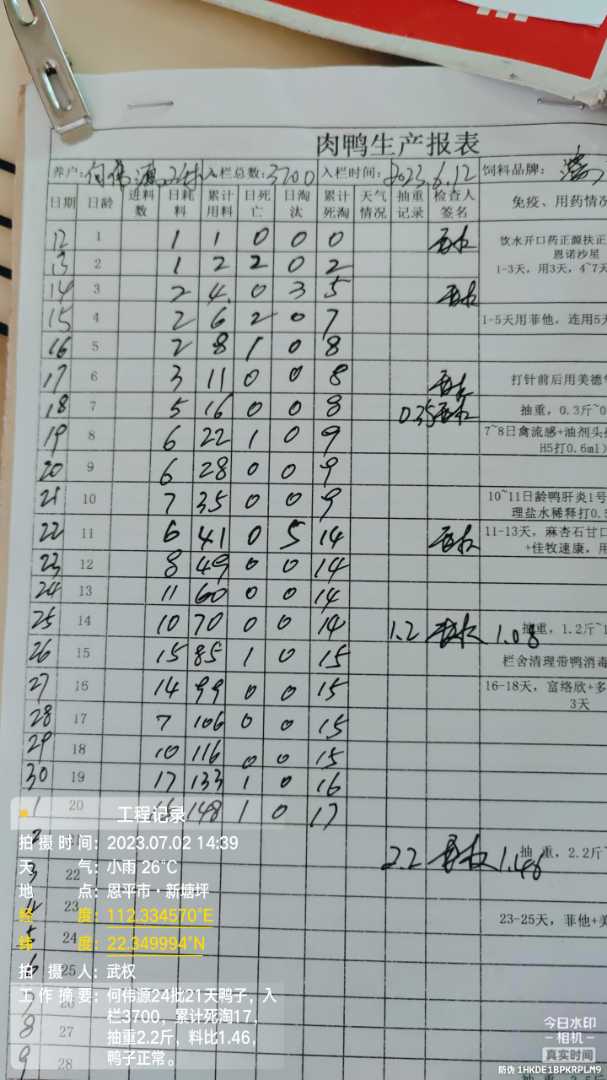 肉鸭生产报表
养户: 何伟源 24批 入栏总数: 3700 入栏时间: 2023.6.12 饲料品牌:
日期 日龄 进料数 日耗料 累计用料 日死亡 日淘汰 累计死淘 天气情况 抽重记录 检查人签名 免疫、用药情况
12 1 1 1 0 0 0 饮水开口药正源扶正
恩诺沙星
1-3天，用3天，4~7天
13 2 1 2 2 0 2
14 3 2 4 0 3 5
15 4 2 6 2 0 7 1-5天用菲他，连用5天
16 5 2 8 1 0 8
17 6 3 11 0 0 8 打针前后用美德
18 7 5 16 0 0 8 0.35 抽重，0.3斤~0
19 8 6 22 1 0 9 7~8日禽流感+油剂头孢
H5打0.6ml)
20 9 6 28 0 0 9
21 10 7 35 0 0 9 10~11日龄鸭肝炎1号
理盐水稀释打0.
22 11 6 41 0 5 14 11-13天，麻杏石甘口
+佳牧速康，用
23 12 8 49 0 0 14
24 13 11 60 0 0 14
25 14 10 70 0 0 14 1.2 1.08 抽重，1.2斤~
26 15 15 85 1 0 15 栏舍清理带鸭消毒
27 16 14 99 0 0 15 16-18天，富络欣+多
3天
28 17 7 106 0 0 15
29 18 10 116 0 0 15
30 19 17 133 1 0 16
1 20 15 148 1 0 17
2 2.2 1.46 抽 重，2.2斤~
3 22
4 23 23-25天，菲他+美
5 24
6 25
8 27
9 28
工程记录
拍摄时间: 2023.07.02 14:39
天 气: 小雨 26℃
地 点: 恩平市·新塘坪
经 度: 112.334570°E
纬 度: 22.349994°N
拍 摄 人: 武权
工作摘要: 何伟源24批21天鸭子，入
栏3700，累计死淘17，
抽重2.2斤，料比1.46，
鸭子正常。
今日水印
-相机-
真实时间
防伪 1HKDE1BPKRPLM9